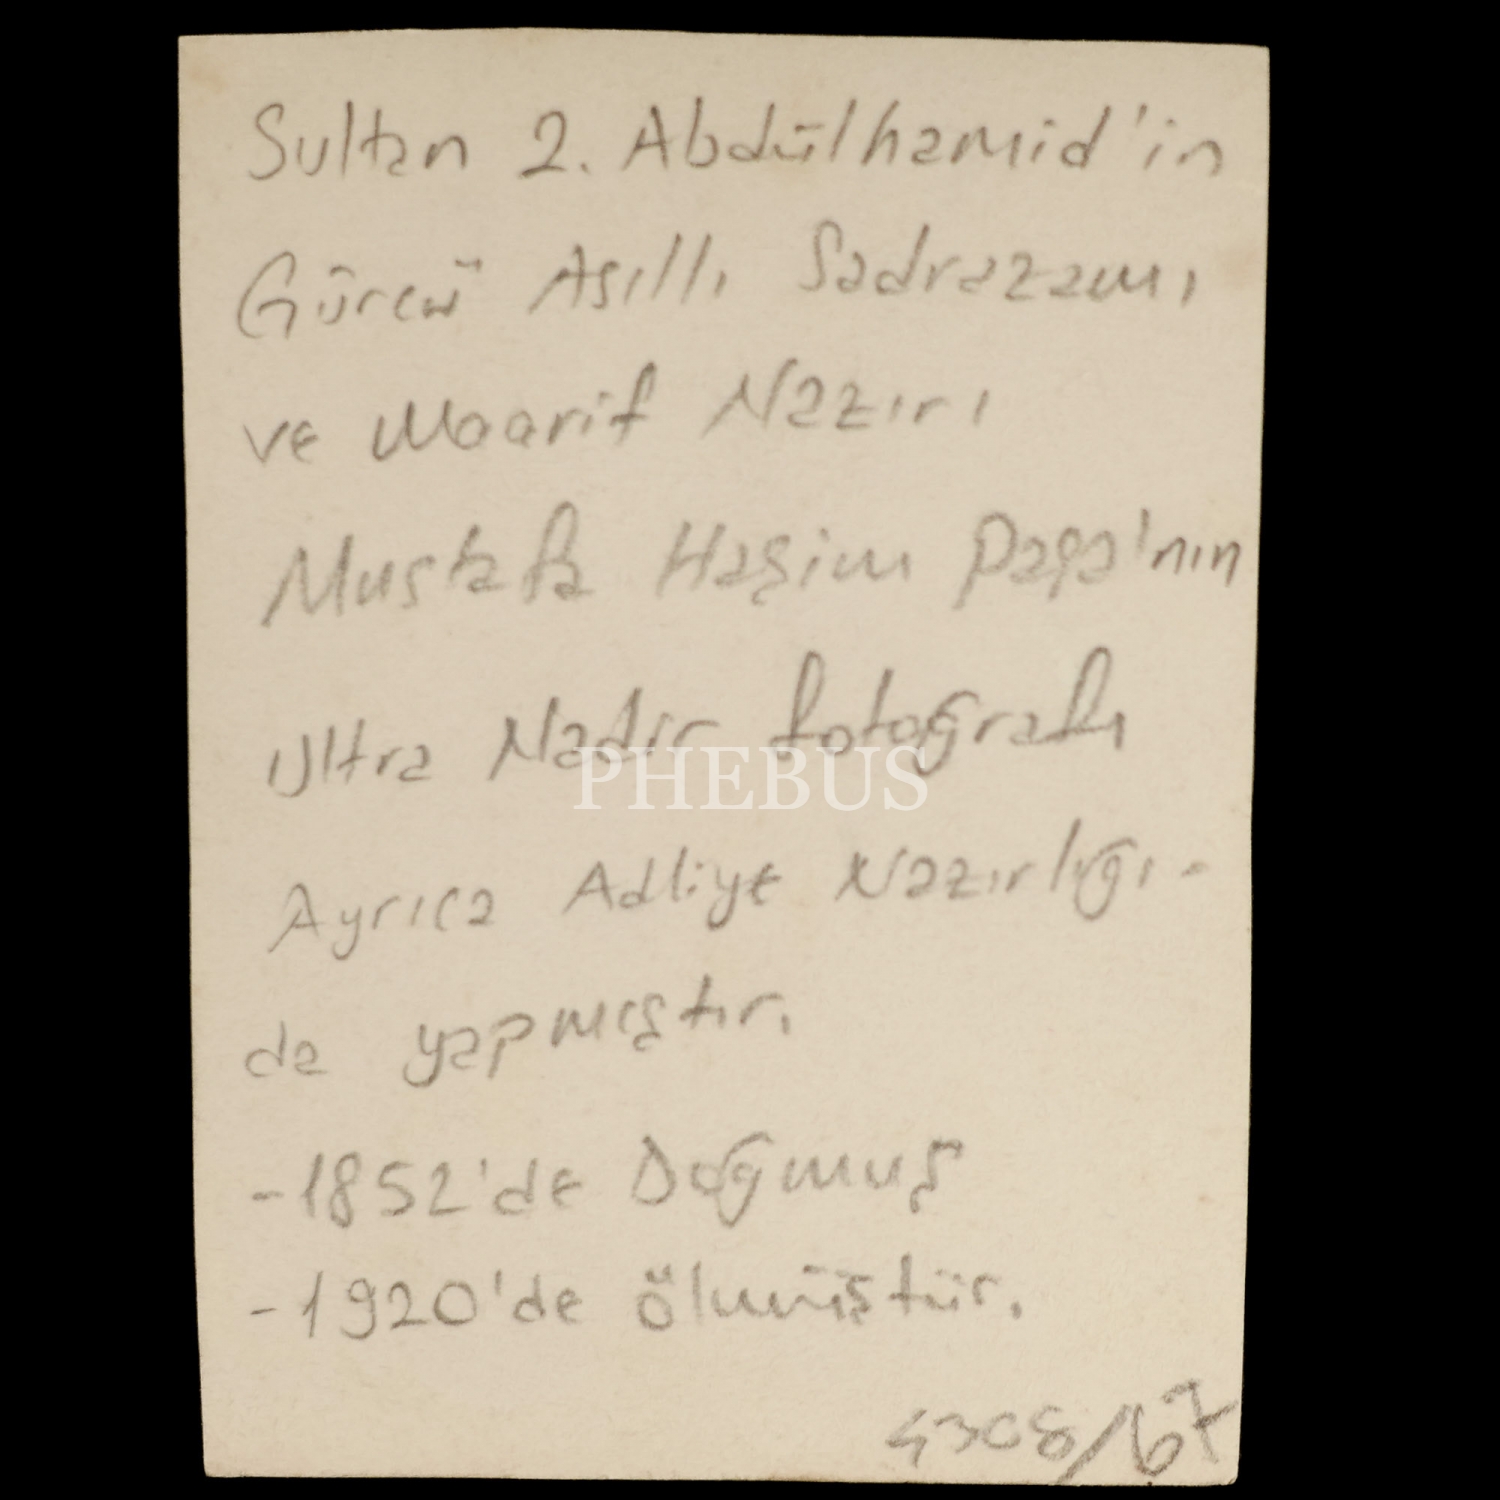 Sultan 2. Abdülhamid'in
Gürcü Asıllı Sadrazamı
ve Maarif Nazırı
Mustafa Haşim Paşa'nın
Ultra Nadir fotoğrafı
PHEBUS
Ayrıca Adliye Nazırlığı-
da yapmıştır.
-1852'de Doğmuş
-1920'de ölmüştür.
4308/67